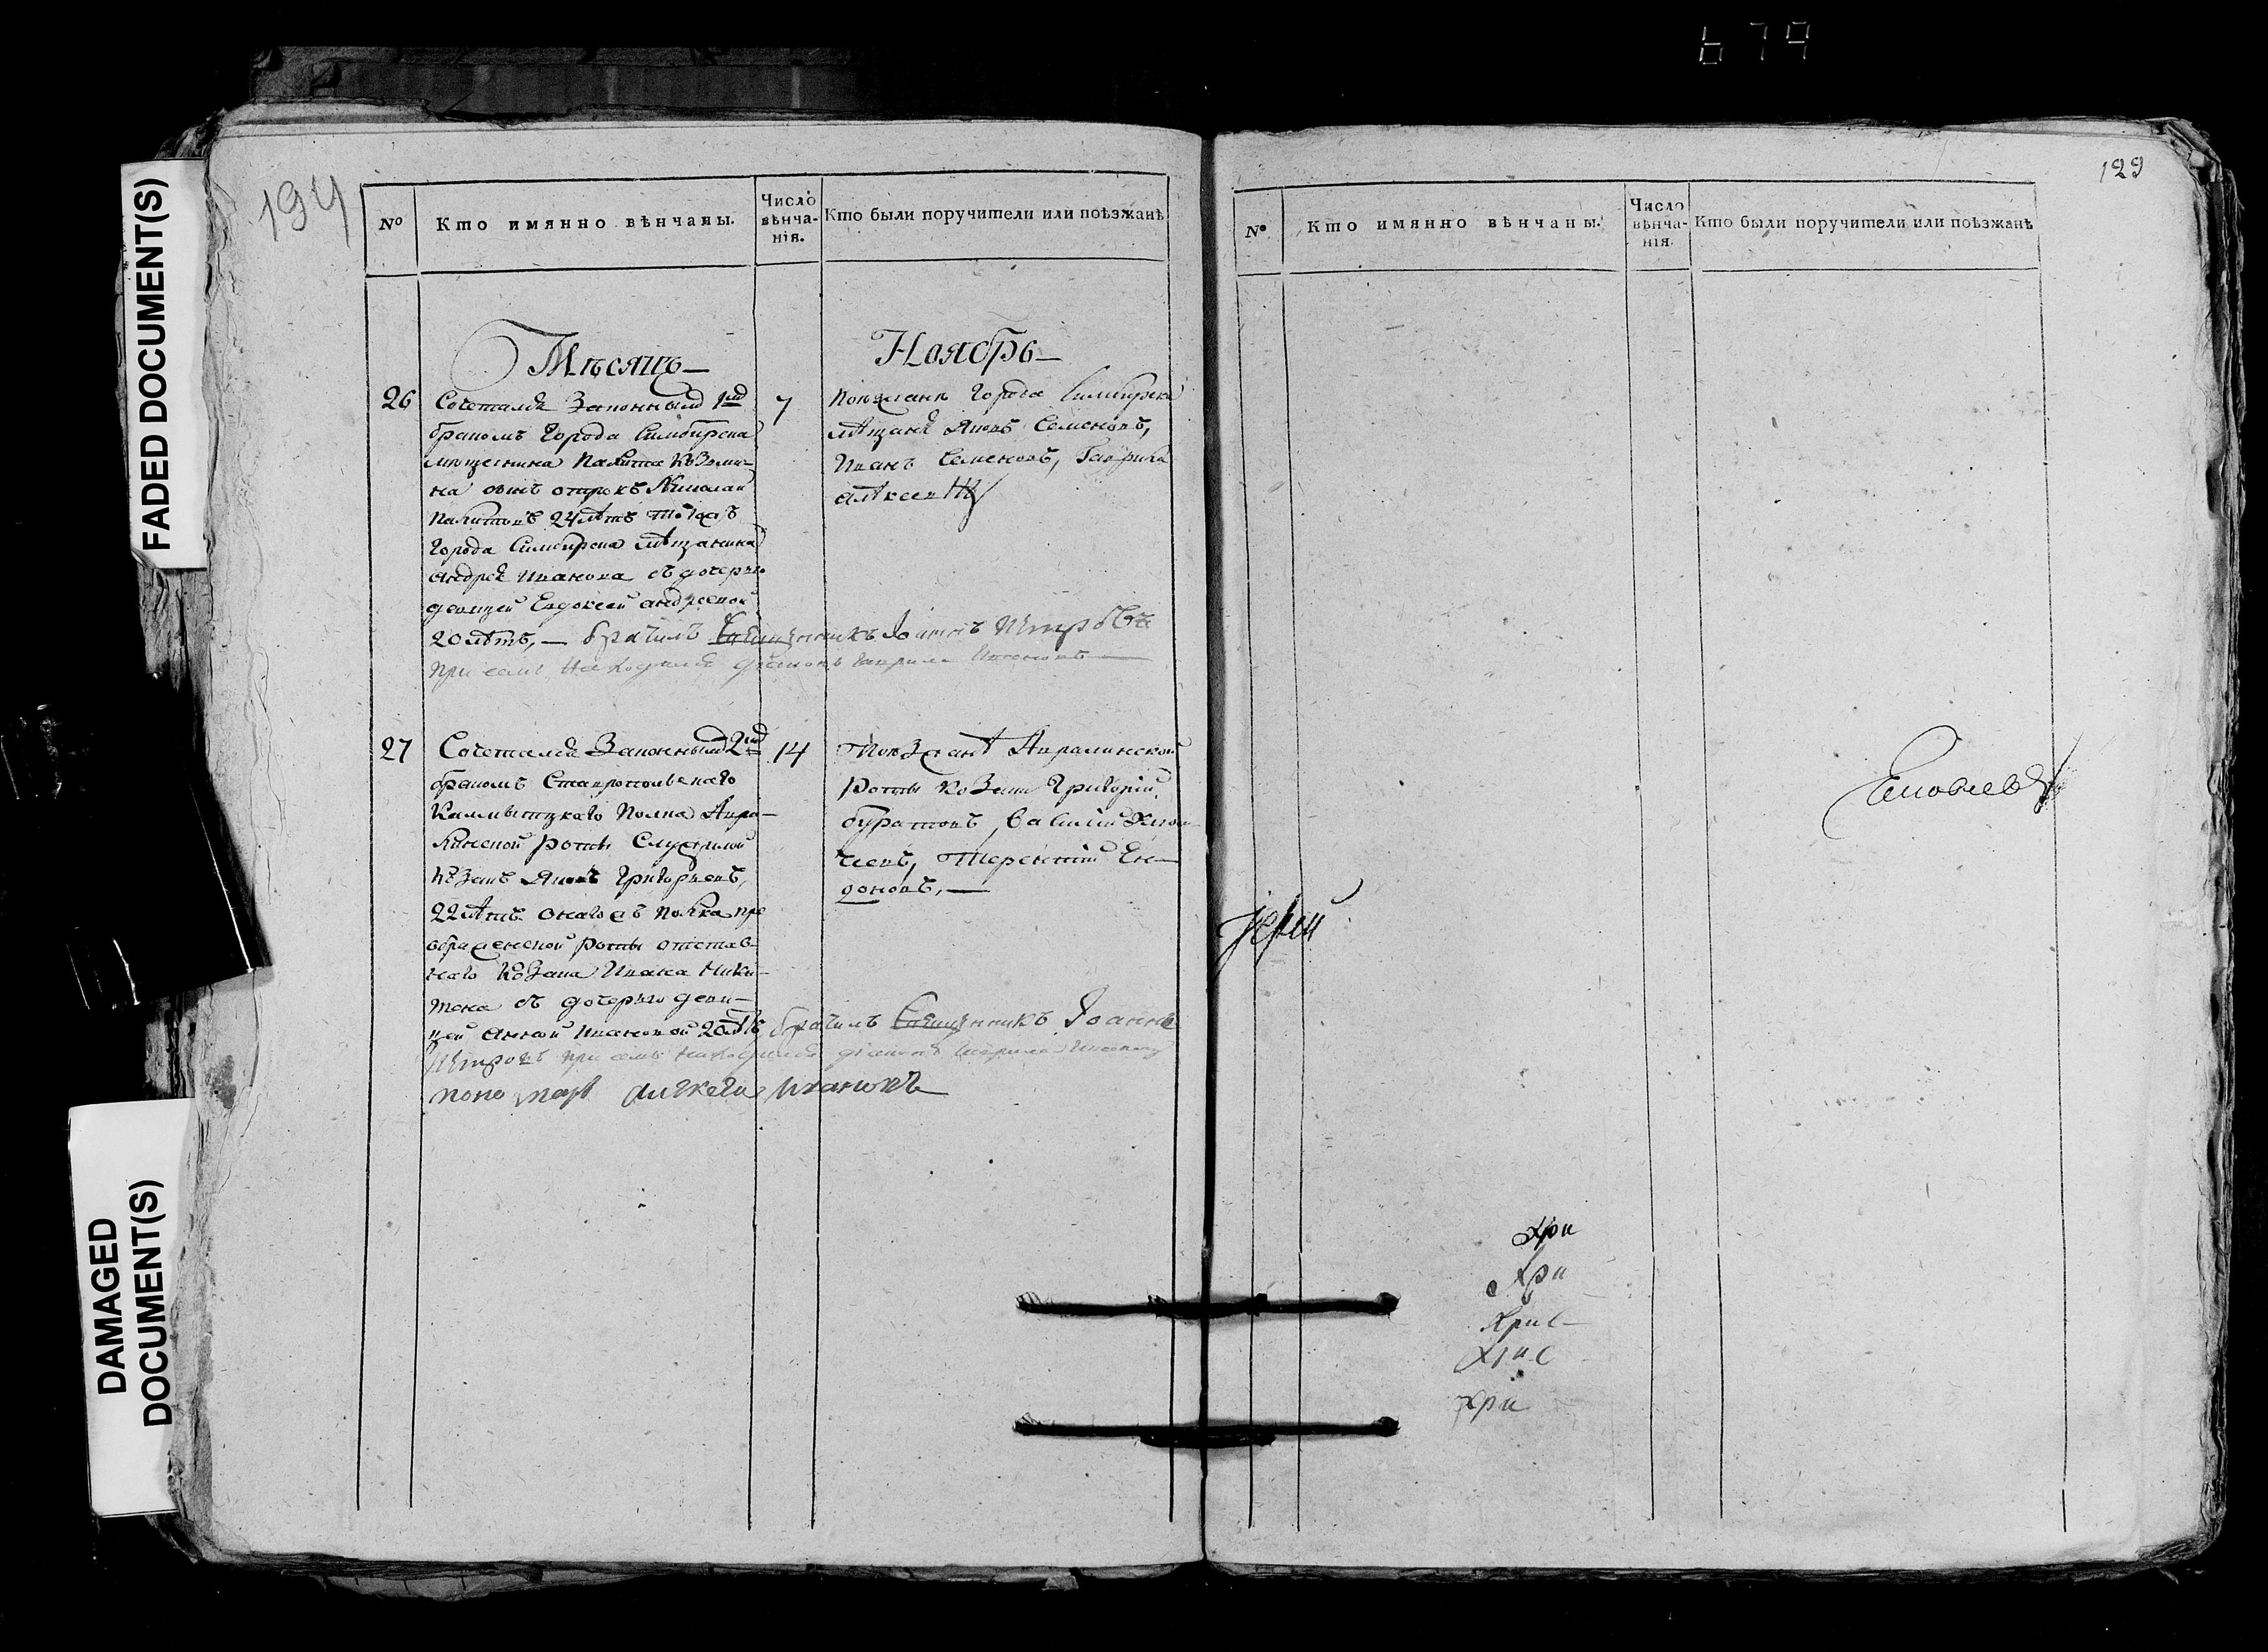 679
FADED DOCUMENT(S)
DAMAGED
DOCUMENT(S)
194
№
Кто имянно вѣнчаны.
Число
вѣнча-
нія.
Кто были поручители или поѣзжанѣ
Мѣсяцъ—
Ноябрь—
26
Сочетался Законнымъ 1мъ
бракомъ Города Симбирска
мещенина
сынъ отрокъ Николай
24 лѣтъ тогожъ
города Симбирска мѣщанина
андрея Иванова съ дочерью
девицей Евдокеей андреевой
20 лѣтъ,— брачилъ Священникъ Іоаннъ Петровъ
при семъ находился діаконъ Гаврила
7
Поезжанѣ Города Симбирска
мѣщанѣ Яковъ Семеновъ,
Иванъ Семеновъ, Гаврила
алѣксеевъ
27
Сочетался Законнымъ 2мъ
бракомъ Ставропольскаго
Калмытцкаго Полка
роты Служилой
Козакъ Яковъ Григорьевъ,
22 лѣтъ онагожъ полка пре
ображенской роты отстав-
наго Козака Ивана Ники-
тена съ дочерью деви-
цей анной ивановой 20 лѣтъ, брачилъ Священникъ Іоаннъ
Петровъ при семъ находился діаконъ Гаврила
пономарь алѣксей Ивановъ
14
Поезжанѣ
роты Козаки Григорій
буратовъ, Василій
Терентій
129
№
Кто имянно вѣнчаны.
Число
вѣнча-
нія.
Кто были поручители или поѣзжанѣ
Іерей
Хри
Хри
Хрис
Хрис
Хри